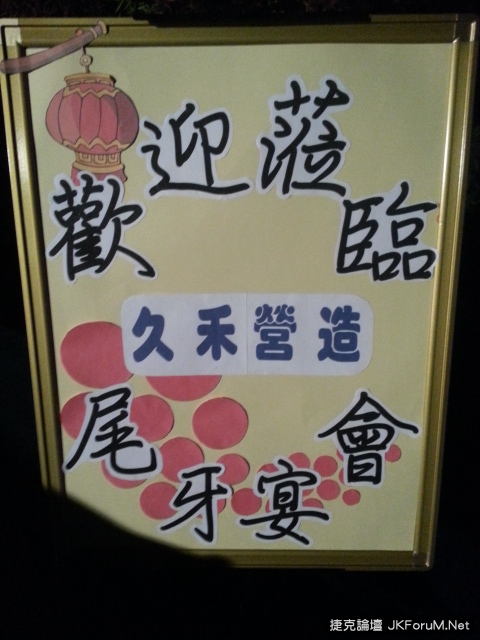 歡迎蒞臨
久禾營造
尾牙宴會
捷克論壇 JKForuM.Net